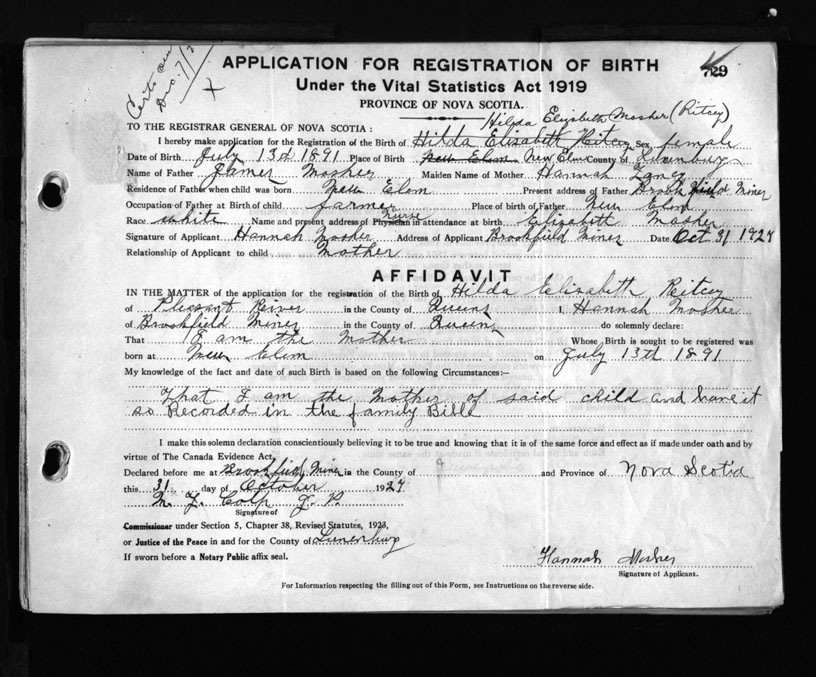 Certs
Dec. 7/2
x
APPLICATION FOR REGISTRATION OF BIRTH
729
Under the Vital Statistics Act 1919
PROVINCE OF NOVA SCOTIA.
Hilda Elizabeth Mosher (Ritcey)
TO THE REGISTRAR GENERAL OF NOVA SCOTIA :
I hereby make application for the Registration of the Birth of Hilda Elizabeth Ritcey Sex female
Date of Birth July 13d 1891 Place of Birth New Elom New Elm County of Lunenburg
Name of Father James Mosher Maiden Name of Mother Hannah
Residence of Father when child was born New Elom Present address of Father Brookfield Mines
Occupation of Father at Birth of child farmer Place of birth of Father New Elom
Race white Name and present address of Physician Nurse in attendance at birth Elizabeth Mosher
Signature of Applicant Hannah Mosher Address of Applicant Brookfield Mines Date Oct 31 1927
Relationship of Applicant to child Mother
AFFIDAVIT
IN THE MATTER of the application for the registration of the Birth of Hilda Elizabeth Ritcey
of Pleasant River in the County of Queens I, Hannah Mosher
of Brookfield Mines in the County of Queens do solemnly declare:
That I am the Mother Whose Birth is sought to be registered was
born at New Elom on July 13th 1891
My knowledge of the fact and date of such Birth is based on the following Circumstances:—
That I am the Mother of said child and have it
so Recorded in the family Bible
I make this solemn declaration conscientiously believing it to be true and knowing that it is of the same force and effect as if made under oath and by
virtue of The Canada Evidence Act.
Declared before me at Brookfield Mines in the County of and Province of Nova Scotia
this 31 day of October 1927
M. L. Colp J. P.
Signature of
Commissioner under Section 5, Chapter 38, Revised Statutes, 1923,
or Justice of the Peace in and for the County of Lunenburg
If sworn before a Notary Public affix seal.
Hannah Mosher
Signature of Applicant.
For Information respecting the filling out of this Form, see Instructions on the reverse side.